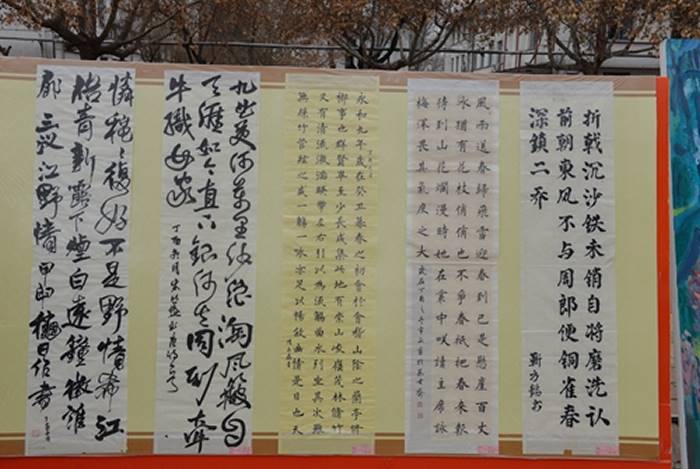 折戟沉沙铁未销自将磨洗认
前朝東风不与周郎便铜雀春
深鎖二乔
風雨送春歸飛雪迎春到已是懸崖百丈
冰猶有花枝俏俏也不爭春祇把春來報
待到山花爛漫時她在叢中咲讀主席詠
梅深畏其氣度之大
永和九年歲在癸丑暮春之初會於會稽山陰之蘭亭修
禊事也群賢畢至少長咸集此地有崇山峻嶺茂林脩竹
又有清流激湍暎帶左右引以為流觴曲水列坐其次雖
無絲竹管絃之盛一觴一詠亦足以暢敘幽情是日也天
九曲黃河萬里沙浪淘風簸自
天涯如今直上銀河去同到牽
牛織女家
復好不是野情希江
青新霽下煙白遠鐘微誰
江野情甲申